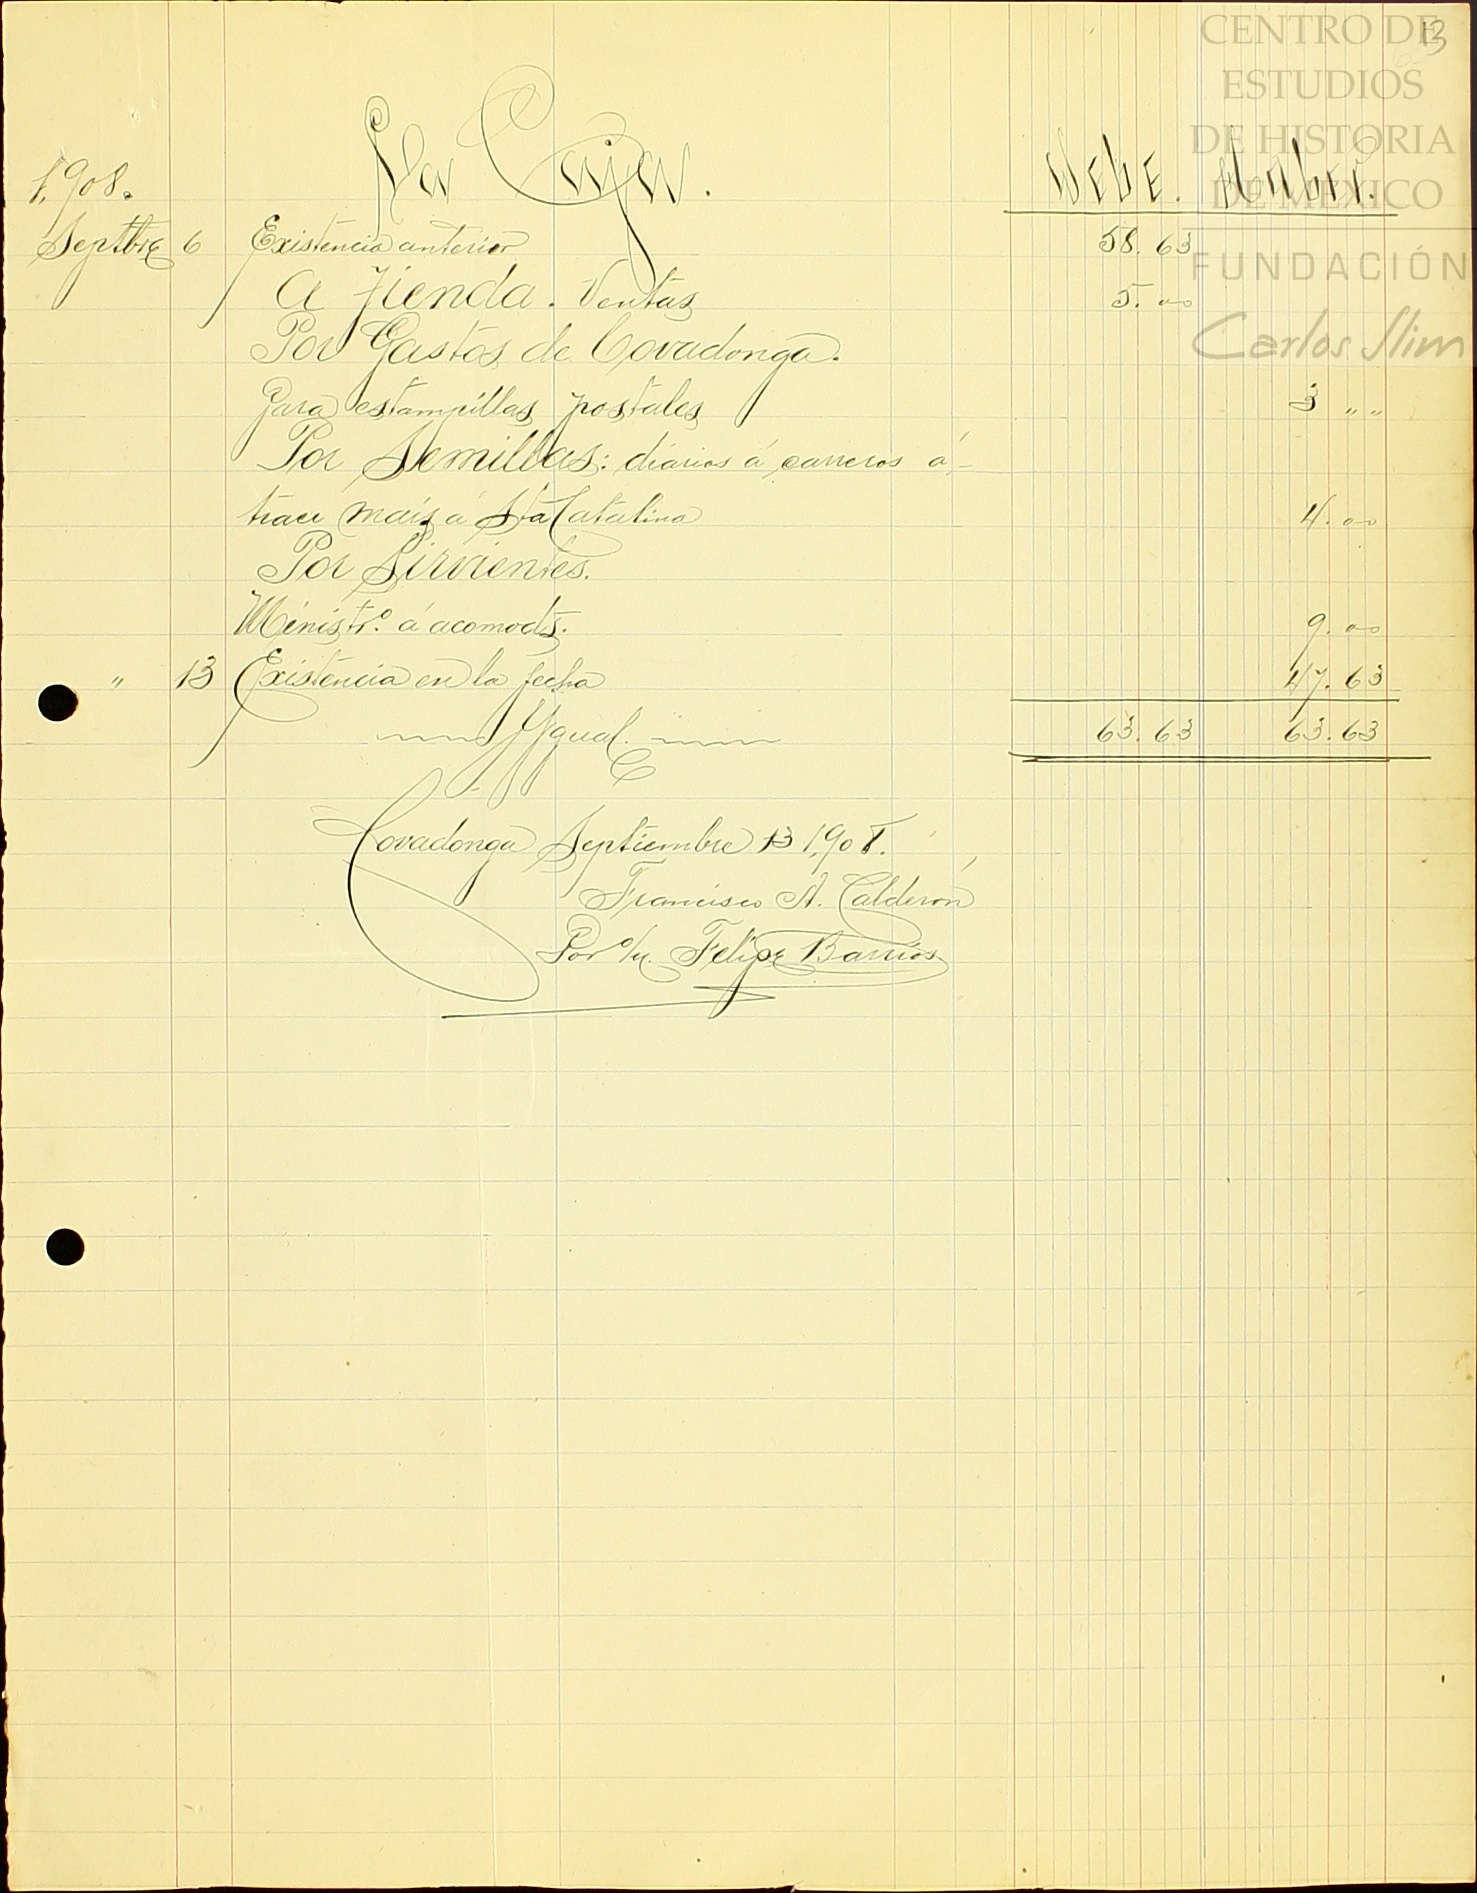 13
CENTRO DE
ESTUDIOS
DE HISTORIA
DE MÉXICO
FUNDACIÓN
Carlos Slim
1,908. La Caja. Debe. Haber.
Septbre 6 Existencia anterior 58.63
A Tienda. Ventas 5.00
Por Gastos de Covadonga.
Para estampillas postales 3 " "
Por Semillas: diarios á carreros á
traer maíz á Sta Catalina 4.00
Por Sirvientes.
Ministro. á acomods. 9.00
" 13 Existencia en la fecha 47.63
Ygual. 63.63 63.63
Covadonga Septiembre 13 1,908.
Francisco A. Calderón
Por o/u. Felipe Barrios